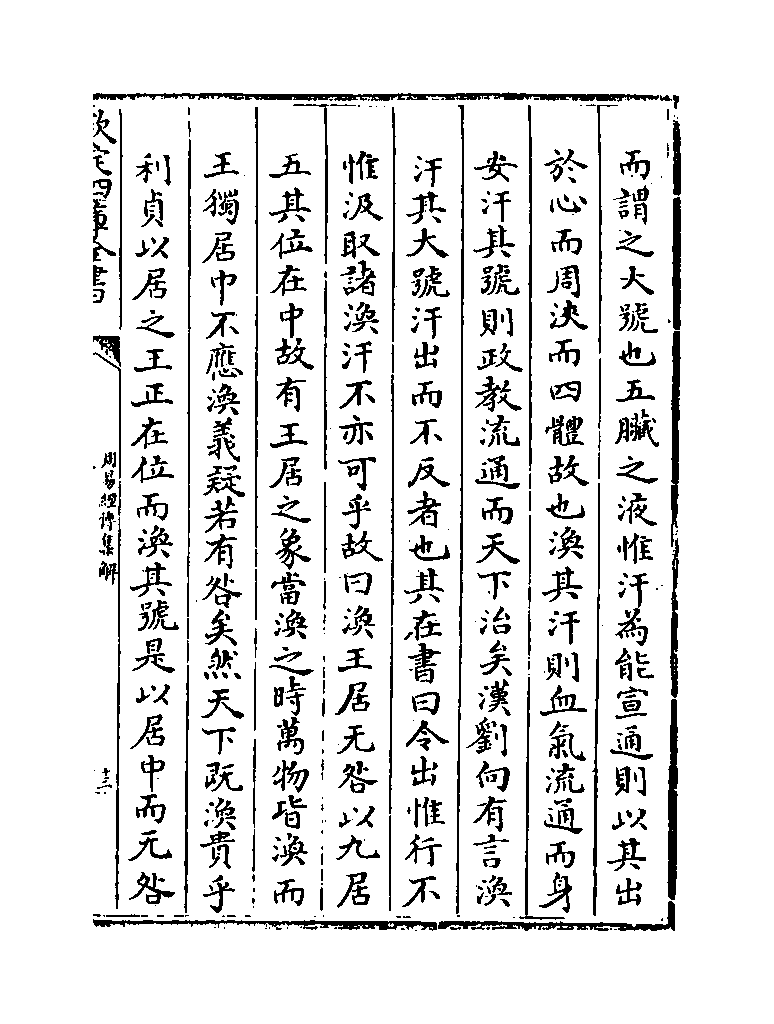 而謂之大號也五臟之液惟汗為能宣通則以其出
於心而周浹而四體故也渙其汗則血氣流通而身
安汗其號則政教流通而天下治矣漢劉向有言渙
汗其大號汗出而不反者也其在書曰令出惟行不
惟汲取諸渙汗不亦可乎故曰渙王居无咎以九居
五其位在中故有王居之象當渙之時萬物皆渙而
王獨居中不應渙義疑若有咎矣然天下既渙貴乎
利貞以居之王正在位而渙其號是以居中而无咎
欽定四庫全書
周易經傳集解
十三